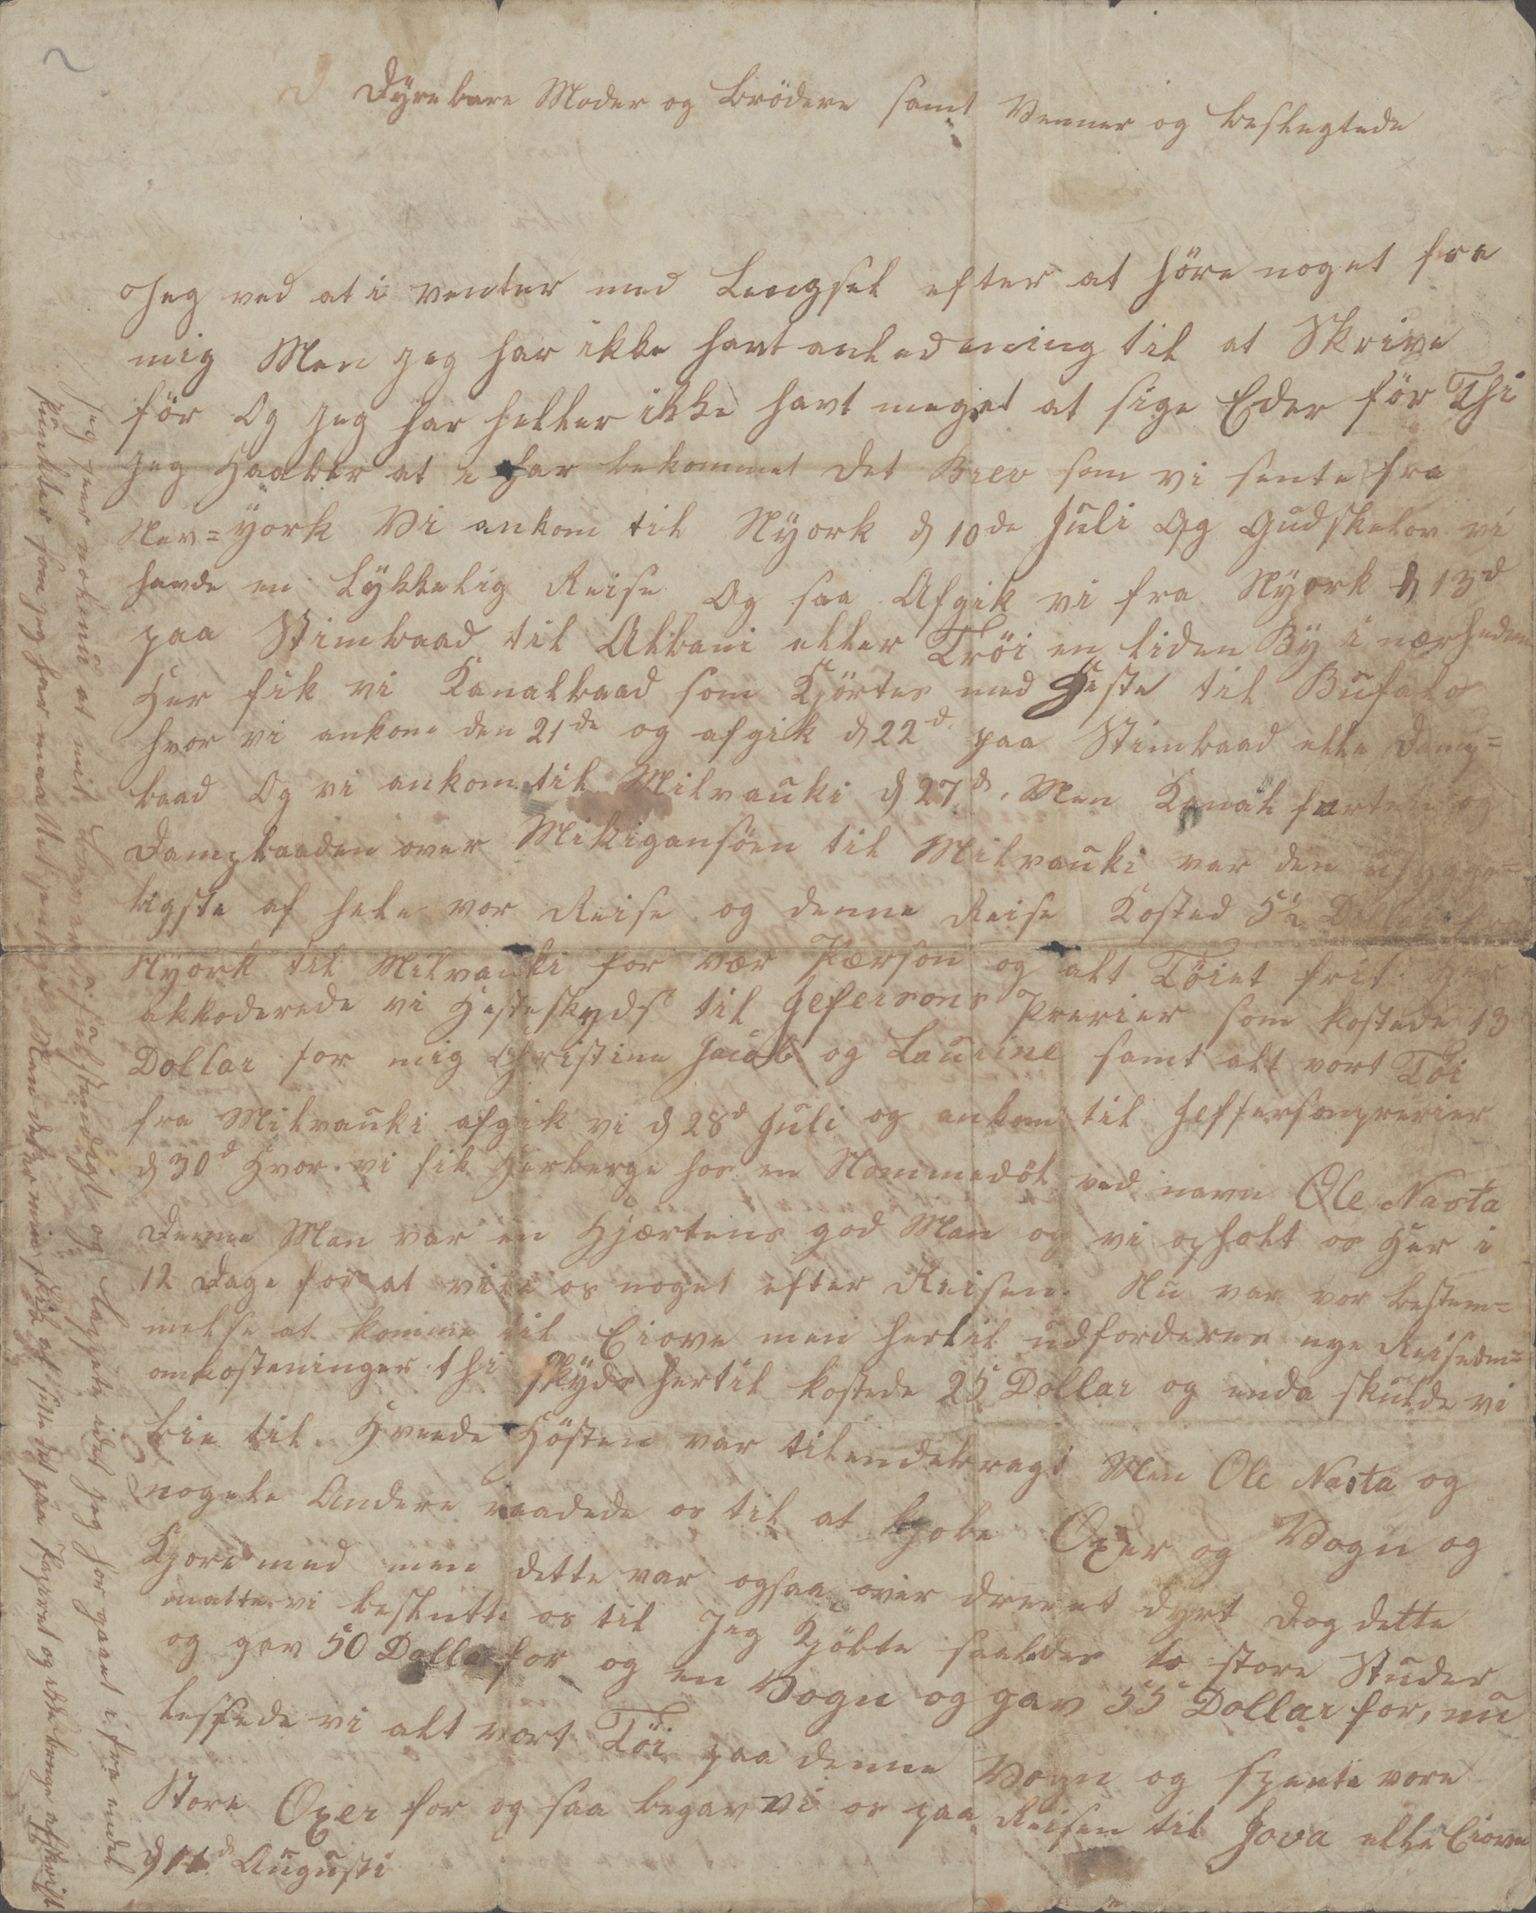 Dÿrebare Moder og Brödere samt Venner og beslegtede
Jeg ved at i venter med Lengsel efter at höre noget fra
mig Men jeg har ikke havt anledening til at Skrive
för Og jeg har heller ikke havt meget at sige Eder för Thi
jeg Haaber at i har bekommet det Brev som vi sente fra
Nev=ÿork Vi ankom til Nÿork d 10de Juli Og Gudskelov vi
havde en Lÿkkelig Reise Og saa Afgik vi fra Nÿork d 13d
paa Stimbaad til Albani eller Tröi en liden Bÿ i nærheden
Her fik vi Kanalbaad som Kjörtes med Heste til Bufalo
hvor vi ankom den 21de og afgik d 22d paa Stimbaad elle Damp=
baad Og vi ankom til Milvauki d 27d. Men Kanal farten og
Dampbaaden over Mikigansöen til Milvauki var den uhygge=
ligste af hele vor Reise og denne Reise Kosted 5½ Dollar fra
Nÿork til Milvauki for vær Pærson og alt Töiet frit. Her
akkoderede vi Hesteskyds til Jefersons Prerier som kostede 13
Dollar for mig Christine Jacob og Laurine samt alt vort Töi
fra Milvauki afgik vi d 28d Juli og ankom til Jeffersonprerier
d 30d Hvor vi fik Herberge hos en Nommedöl ved navn Ole Nasta
Denne Man var en Hjærtens god Man og vi opholt os Her i
12 Dage for at vile os noget efter Reisen. Nu var vor bestem=
melse at komme til Eiova men hertil udforderes nye Reise
omkosteninger thi Skÿds hertil kostede 25 Dollar og enda skulde vi
bie til Hveede Hösten var tilendebragt Men Ole Nasta og
nogele Andere raadede os til at kjobe Oxer og Vogn og
Kjore med men dette var ogsaa over dreevet dyrt Dog dette
matte vi beslutte os til Jeg Kjöbte saaledes to store Studer
og gav 50 Dollar for og en Vogn og gav 55 Dollar for, nu
lessede vi alt vort Töi paa denne Vogn og spente vore
Store Oxer for og saa begav vi os paa Reisen til Jova elle Eiova
d 11d Augusti
Jeg seer nok nu at mit Brev er ufulstændigt og idet jeg har gaaet i fra endel
punkter som jeg har maa Men det er min skik at sitte det paa Papiret og ikke bruge afskrift